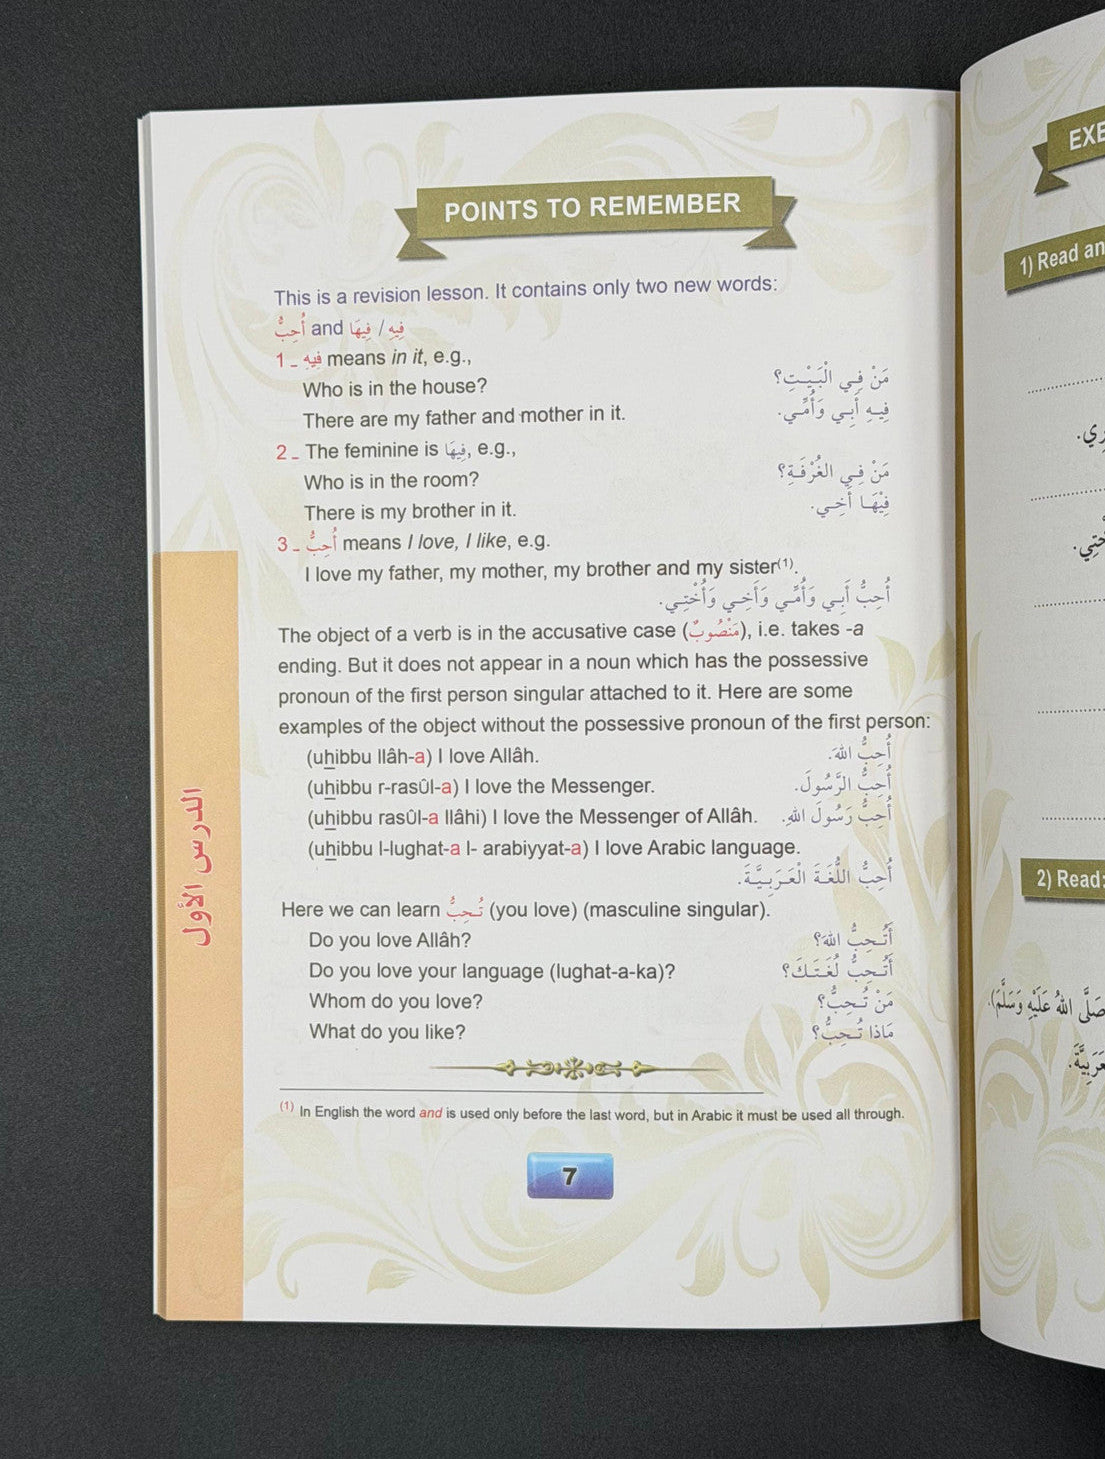 POINTS TO REMEMBER
This is a revision lesson. It contains only two new words:
أُحِبُّ and فِيهَا / فِيهِ
1 _ فِيهِ means in it, e.g.,
Who is in the house? مَنْ فِي الْبَيْتِ؟
There are my father and mother in it. فِيهِ أَبِي وَأُمِّي.
2 _ The feminine is فِيهَا, e.g.,
Who is in the room? مَنْ فِي الغُرْفَةِ؟
There is my brother in it. فِيْهَا أَخِي.
3 _ أُحِبُّ means I love, I like, e.g.
I love my father, my mother, my brother and my sister(1).
أُحِبُّ أَبِي وَأُمِّي وَأَخِي وَأُخْتِي.
The object of a verb is in the accusative case (مَنْصُوبٌ), i.e. takes -a
ending. But it does not appear in a noun which has the possessive
pronoun of the first person singular attached to it. Here are some
examples of the object without the possessive pronoun of the first person:
(uhibbu llâh-a) I love Allâh. أُحِبُّ اللهَ.
(uhibbu r-rasûl-a) I love the Messenger. أُحِبُّ الرَّسُولَ.
(uhibbu rasûl-a llâhi) I love the Messenger of Allâh. أُحِبُّ رَسُولَ اللهِ.
(uhibbu l-lughat-a l- arabiyyat-a) I love Arabic language.
أُحِبُّ اللُّغَةَ الْعَرَبِيَّةَ.
Here we can learn تُحِبُّ (you love) (masculine singular).
Do you love Allâh? أَتُحِبُّ اللهَ؟
Do you love your language (lughat-a-ka)? أَتُحِبُّ لُغَتَكَ؟
Whom do you love? مَنْ تُحِبُّ؟
What do you like? مَاذَا تُحِبُّ؟
(1) In English the word and is used only before the last word, but in Arabic it must be used all through.
7
الدرس الأول
EXE
1) Read an
2) Read:
صَلَّى اللهُ عَلَيْهِ وَسَلَّمَ).